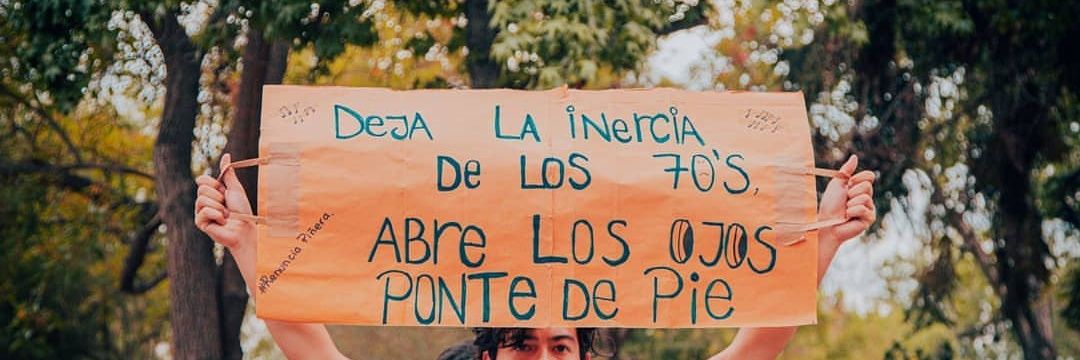 DeJA LA iNerciA
De LOS 70'S,
ABre LOS OJOS
PONTe De Pie
#Renuncia Piñera.